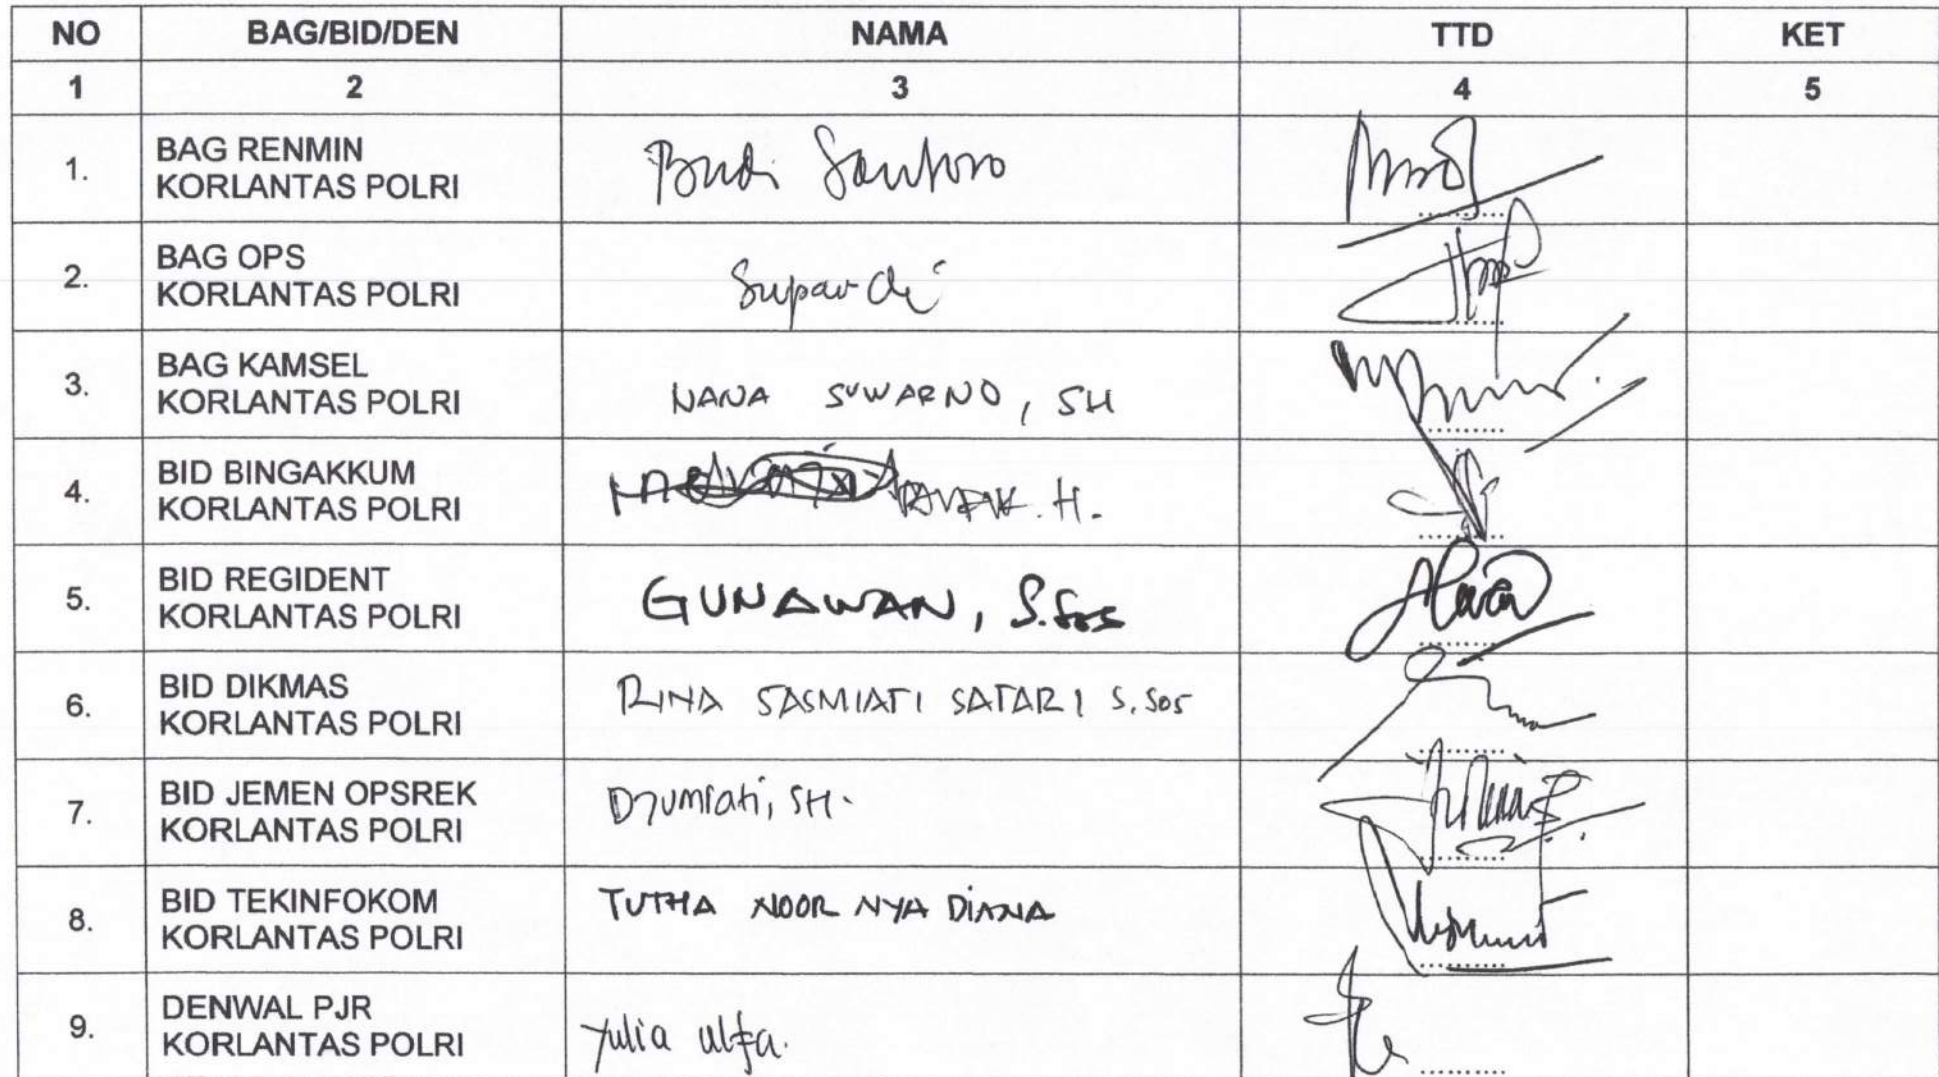 NO BAG/BID/DEN NAMA TTD KET
1 2 3 4 5
1. BAG RENMIN
KORLANTAS POLRI Budi Santoso
2. BAG OPS
KORLANTAS POLRI Supardi
3. BAG KAMSEL
KORLANTAS POLRI NANA SUWARNO, SH
4. BID BINGAKKUM
KORLANTAS POLRI H.
5. BID REGIDENT
KORLANTAS POLRI GUNAWAN, S.Sos
6. BID DIKMAS
KORLANTAS POLRI RINA SASMIATI SATARI S.Sos
7. BID JEMEN OPSREK
KORLANTAS POLRI Djumiati, SH.
8. BID TEKINFOKOM
KORLANTAS POLRI TUTHA NOOR NYA DIANA
9. DENWAL PJR
KORLANTAS POLRI Yulia ulfa.